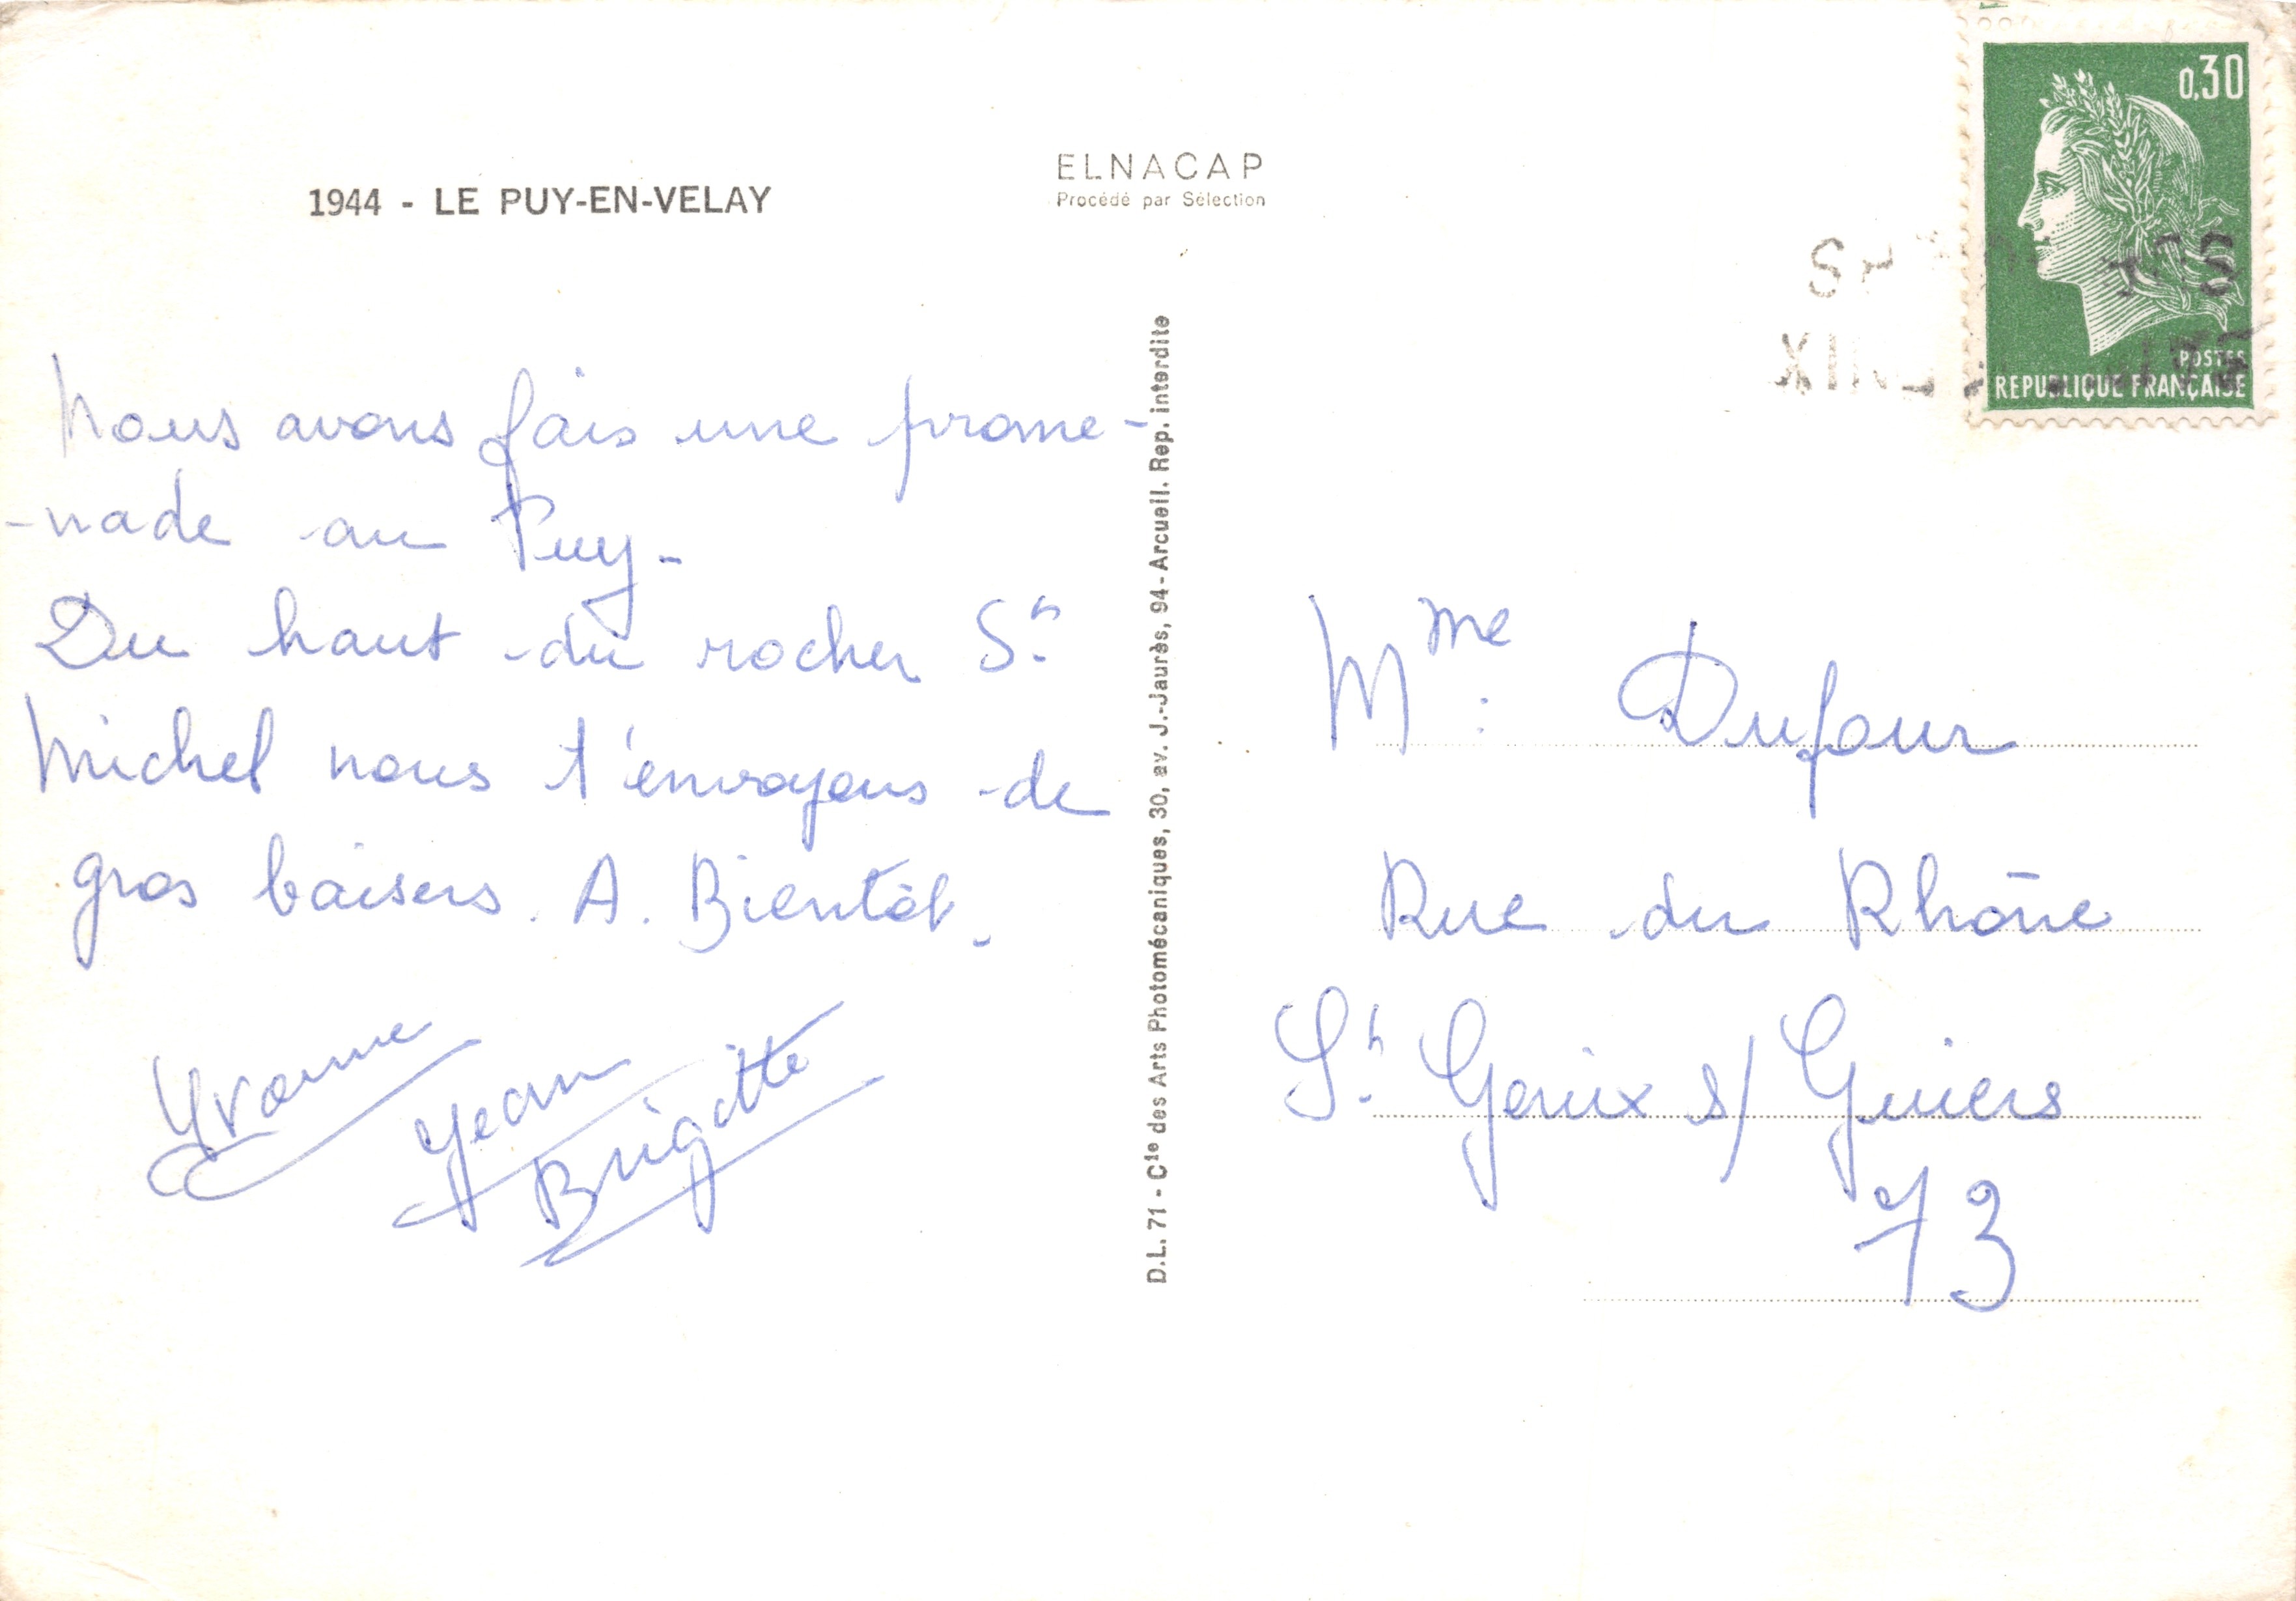 1944 - LE PUY-EN-VELAY
ELNACAP
Procédé par Sélection
0,30
POSTES
REPUBLIQUE FRANÇAISE
Nous avons fais une prome-
-nade au Puy-
Du haut du rocher St
Michel nous t'envoyons de
gros baisers. A. Bientôt.
Yvonne
Jean
Brigitte
D.L. 71 - Cie des Arts Photomécaniques, 30, av. J.-Jaurès, 94 - Arcueil. Rep. interdite
Mme: Dufour
Rue du Rhône
St. Genix s/ Guiers
73